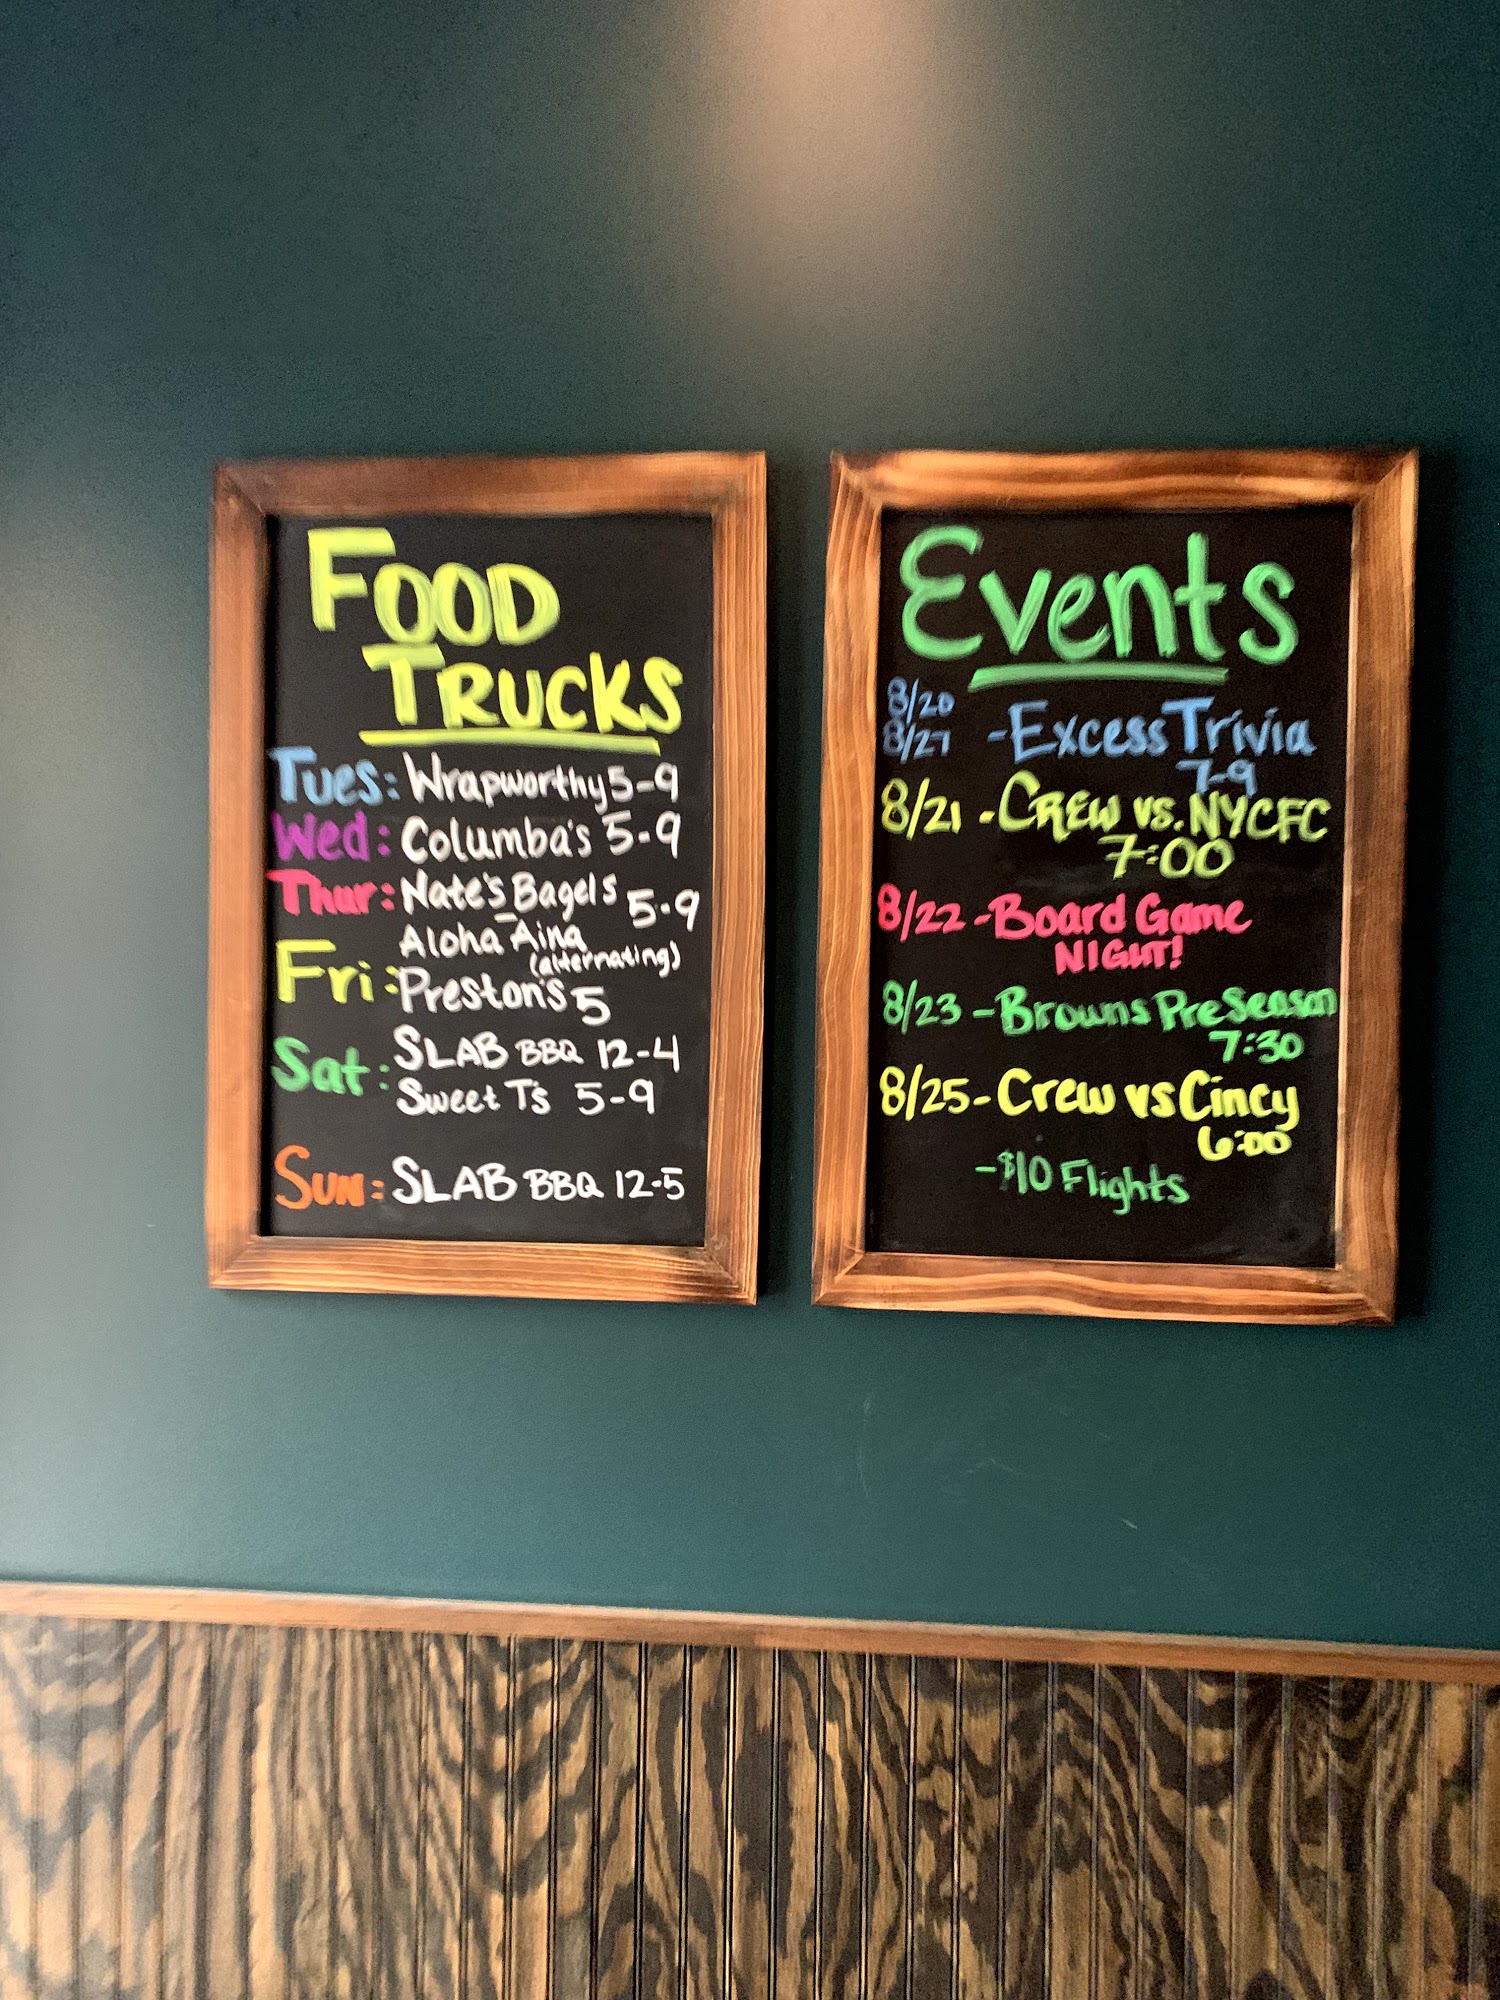 FOOD
TRUCKS
Tues: Wrapworthy 5-9
Wed: Columba's 5-9
Thur: Nate's Bagels 5-9
Aloha Aina
(alternating)
Fri: Preston's 5
Sat: SLAB BBQ 12-4
Sweet T's 5-9
Sun: SLAB BBQ 12-5
Events
8/20
8/27 - Excess Trivia
7-9
8/21 - CREW vs. NYCFC
7:00
8/22 - Board Game
NIGHT!
8/23 - Browns PreSeason
7:30
8/25 - Crew vs Cincy
6:00
- $10 Flights